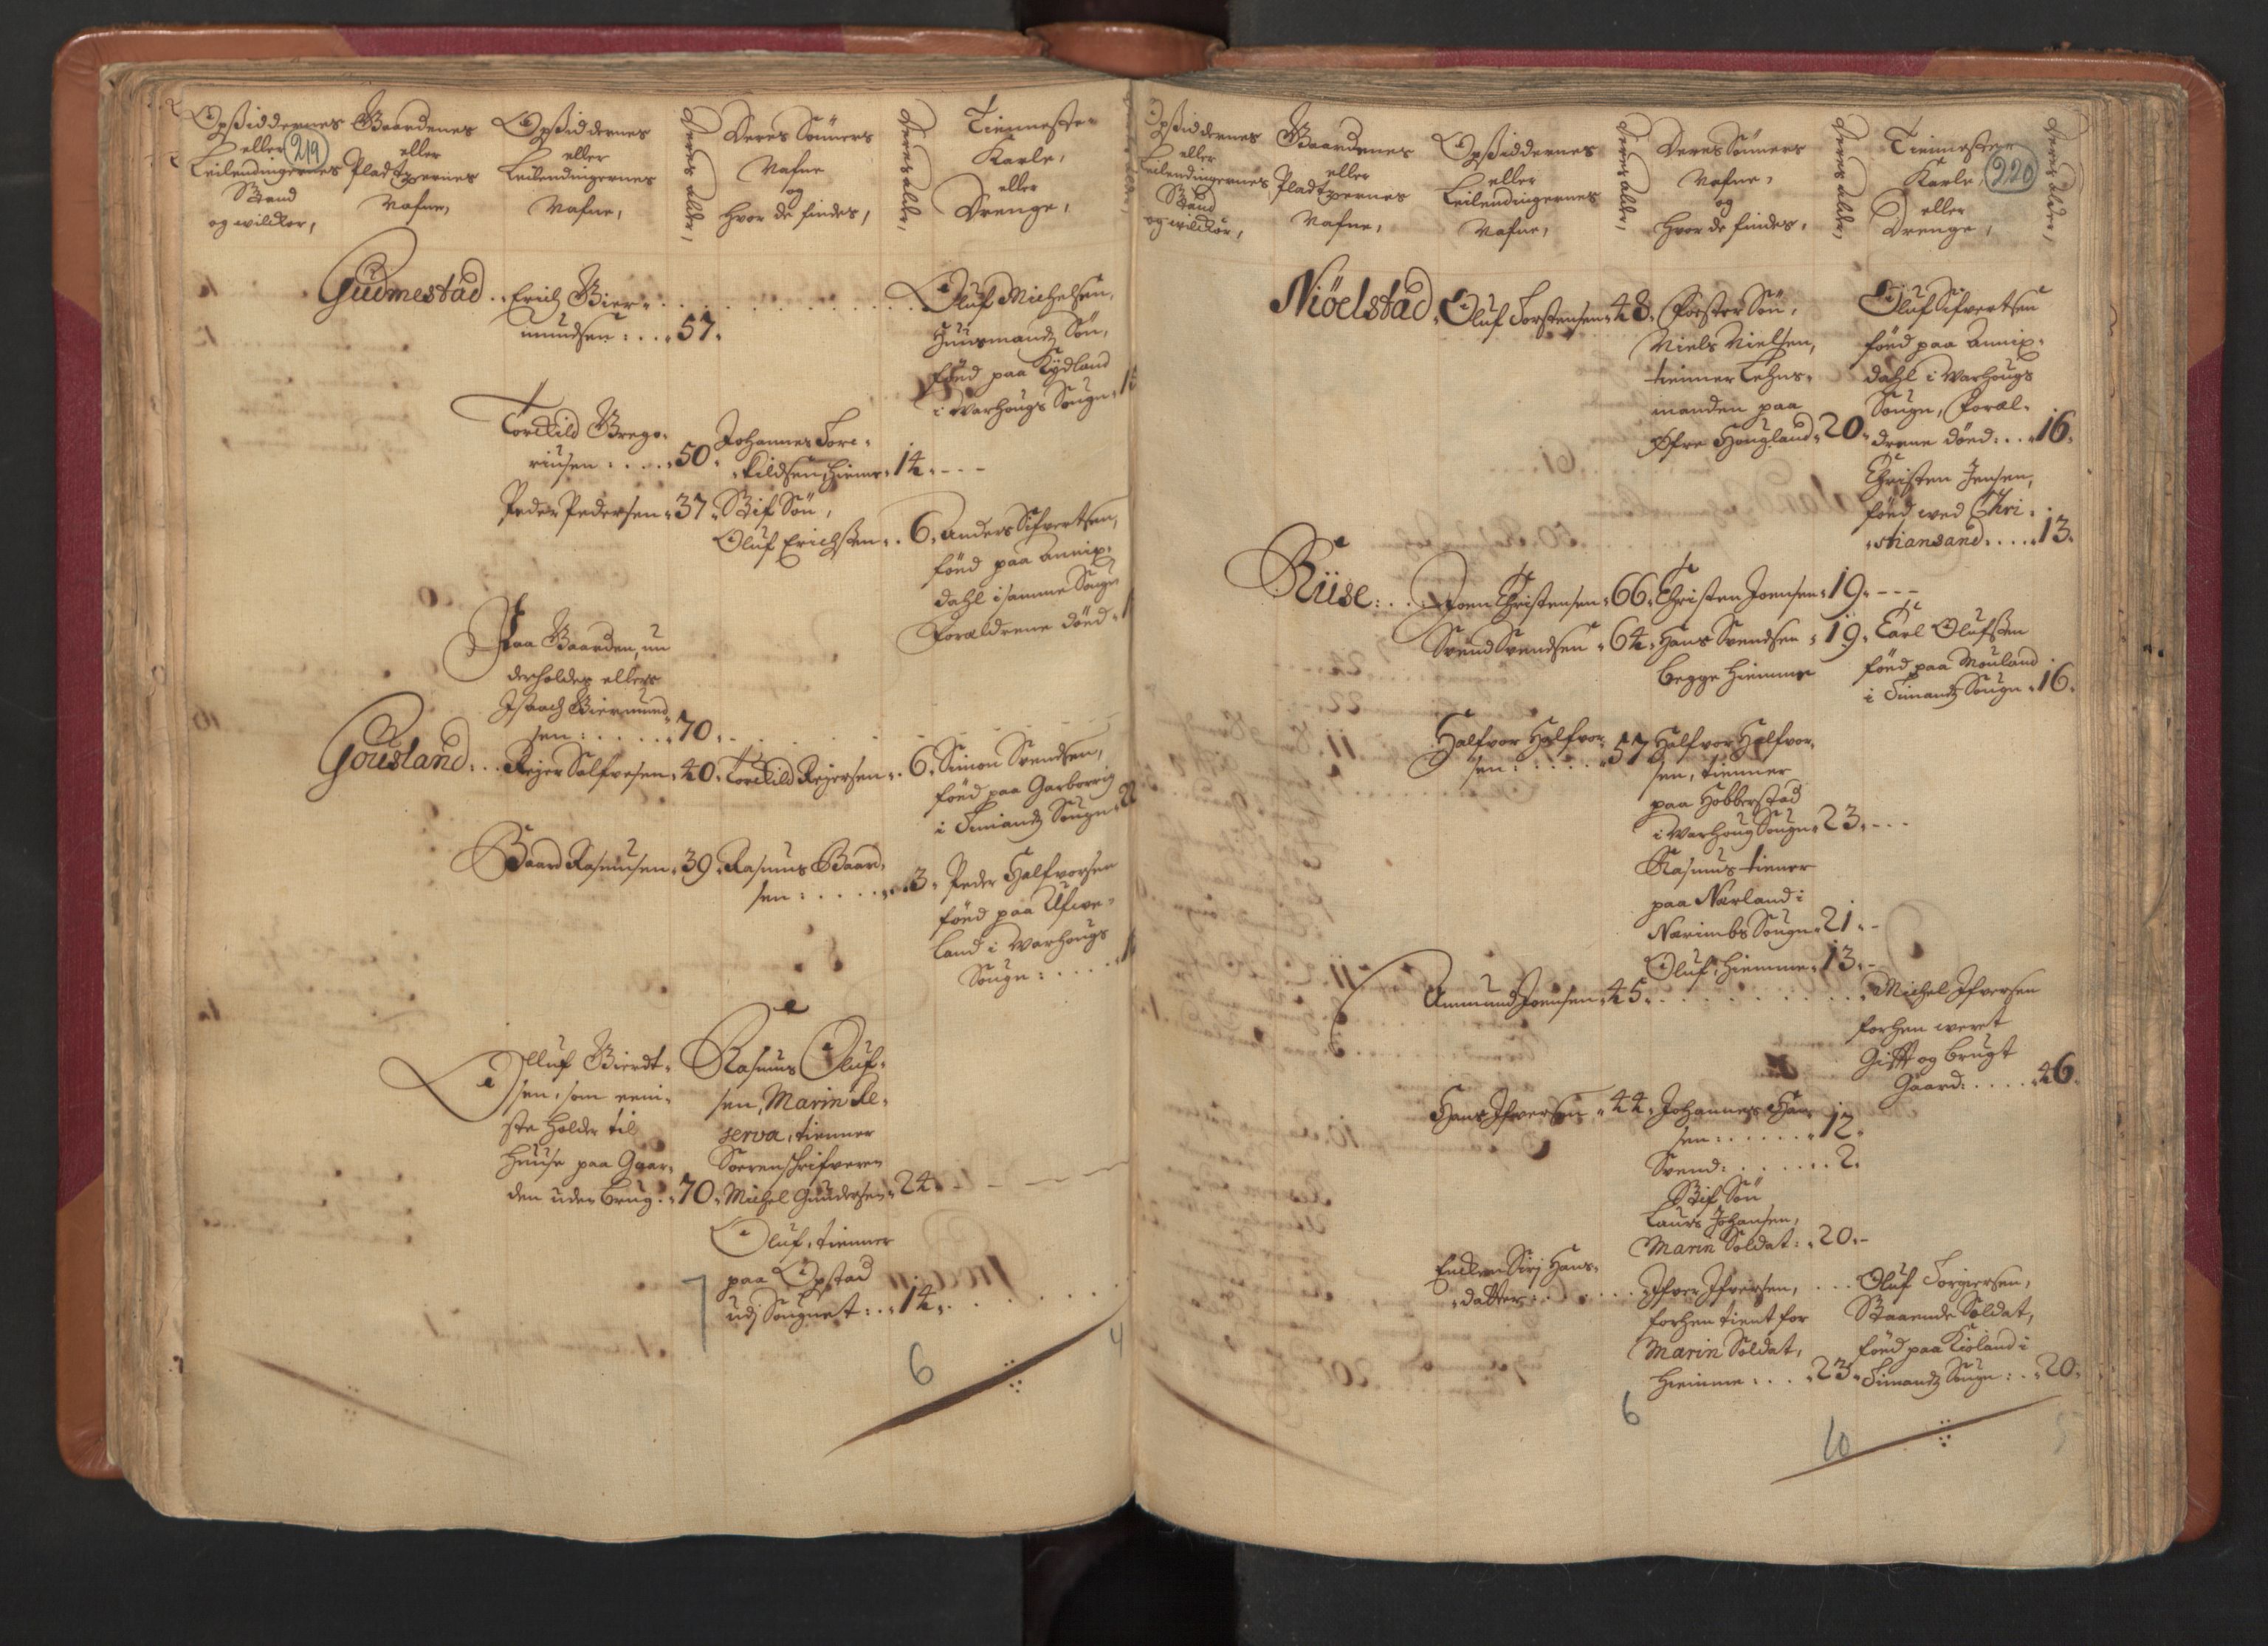 Opsiddernes
eller
Leilendingernes
Stand
og wilckor,
219
Gaardenes
eller
Pladtzernes
Nafne,
Opsiddernes
eller
Leilendingernes
Nafne,
Deres alder,
Deres Sönners
Nafne
og
Hvor de findes,
Deres alder,
Tienneste
Karle,
eller
Drenge,
Gudmestad
Erich Bier-
mundsen: 57.
Oluf Michelsen,
Huusmandz Sön,
föed paa Kydland
i Warhougs Sougn
Torckild Grego-
riusen: 50.
Johannes Torc-
kildsen, hieme 14.
Peder Pedersen 37.
Stif Sön,
Oluf Erichsen 6.
Anders Sifvertsen,
föed paa Annix-
dahl i samme Sougn
Forældrene döed
Paa Gaarden, un
derholdes ellers
Isaach Biermund
sen: 70.
Gousland
Rejer Salfvesen 40.
Torckild Rejersen 6.
Simon Svendsen,
föed paa Garborrig
i Timandz Sougn
Baard Rasmusen 39.
Rasmus Baard-
sen: 3.
Peder Halfvorsen
föed paa Ufwe-
land i Warhougs
Sougn:
Olluf Bierdt-
sen, som eeni-
ste holder til
huuse paa Gaar-
den uden brug. 70.
Rasmus Oluf-
sen, Marin Re-
serva, tienner
Sorenschrifveren
Michel Gundersen 24.
Oluf, tienner
paa Opstad
udj Sougnet: 14.
7
6
4
Opsiddernes
eller
Leilendingernes
Stand
og wilckor,
Gaardenes
eller
Pladtzernes
Nafne,
Opsiddernes
eller
Leilendingernes
Nafne,
Deres alder,
Deres Sönners
Nafne,
og
Hvor de findes,
Deres alder,
Tiennester
Karle,
eller
Drenge,
220
Deres alder,
Niöelstad
Oluf Torstensen 48.
Foster Sön,
Niels Nielsen,
tienner Lehns-
manden paa
Öfre Hougland 20.
Oluf Sifvertsen
föed paa Annix-
dahl i Warhougs
Sougn, Foræl-
drene döed: 16.
Christen Jensen,
föed wed Chri-
stiansand: 13.
Riise:
Joen Christensen 66.
Christen Joensen 19.
Svend Svendsen 64.
Hans Svendsen 19.
begge hiemme
Carl Olufsen
föed paa Mouland
i Timandz Sougn 16.
Halfvor Halfvor-
sen: 57
Halfvor Halfvor-
sen, tienner
paa Hobberstad
i Warhoug Sougn 23.
Rasmus tiener
paa Nærland i
Nærimbs Sougn 21.
Oluf, hiemme 13.
Ammund Joensen 45.
Michel Ifversen
forhen weret
Gifft og brugt
Gaard: 46.
Hans Ifversen 44.
Johannes Han-
sen: 12.
Svend: 2.
Stif Sön
Laurs Johansen,
Marin Soldat: 20.
Encken Sirj Hans-
datter:
Ifver Ifversen,
forhen tient for
Marin Soldat,
hiemme: 23.
Oluf Torgiersen,
Staaende Soldat,
föed paa Kioland i
Timandz Sougn: 20.
6
10
5